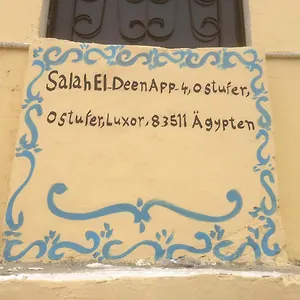 Salah El-Deen App-4, Ostufer,
Ostufer, Luxor, 83511 Ägypten